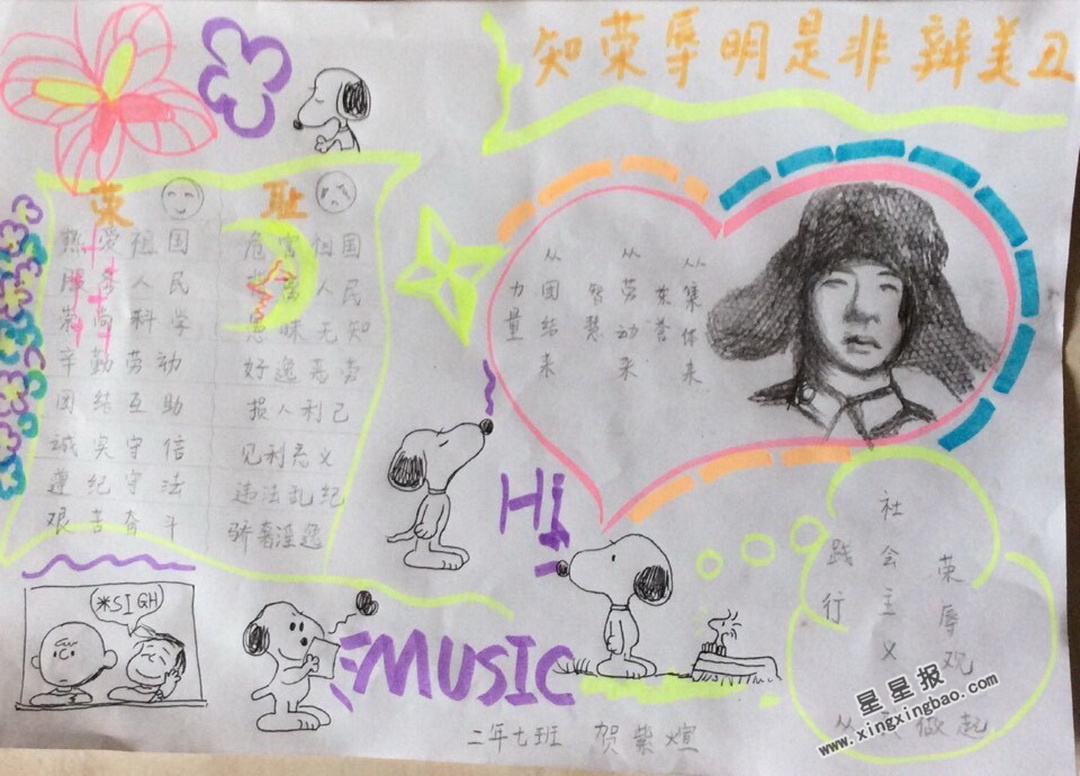 知荣辱明是非辨美丑
荣 耻
热爱祖国 危害祖国
服务人民 背离人民
崇尚科学 愚昧无知
辛勤劳动 好逸恶劳
团结互助 损人利己
诚实守信 见利忘义
遵纪守法 违法乱纪
艰苦奋斗 骄奢淫逸
力量
从团结来
智慧
从劳动来
荣誉
从集体来
Hi
践行
社会主义
荣辱观
从 做起
*SIGH
MUSIC
二年七班 贺紫煊
星星报
www.xingxingbao.com